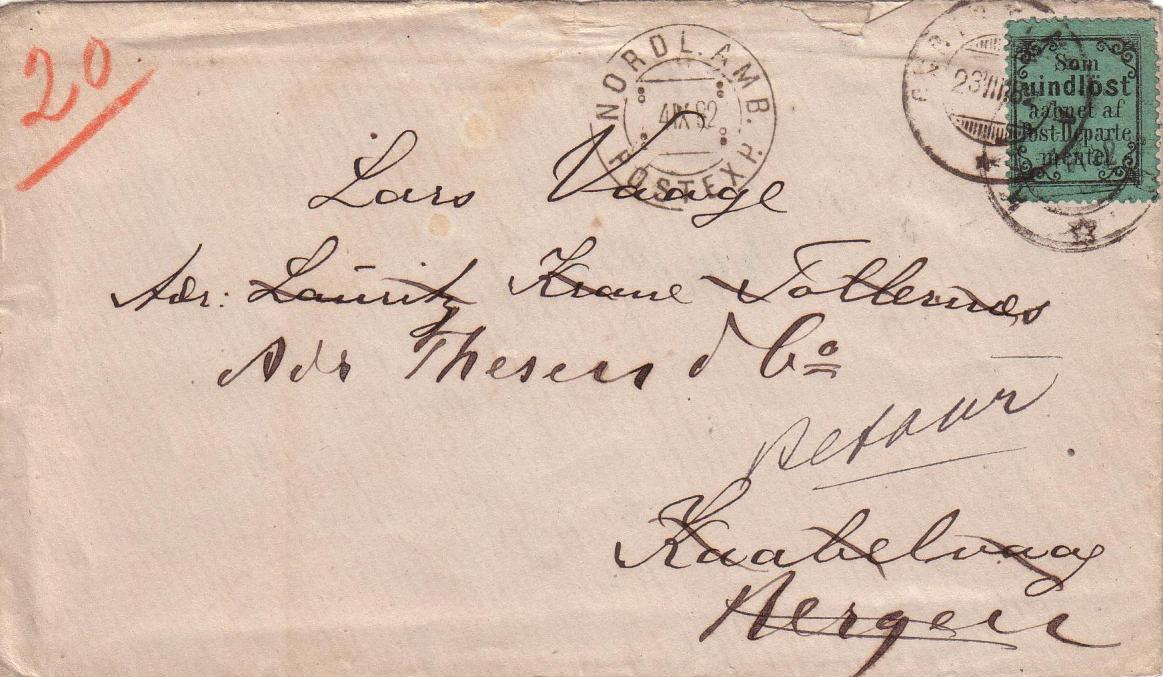 20
NORDL. AMB. POSTEXP.
4 IX 82
23 VIII
Som
uindløst
aabnet af
Post-Departe
mentet
Lars Vaage
Adr: Lauritz Krane Tollernæs
Adr Thesen & Co
Retour
Kaabelvaag
Bergen